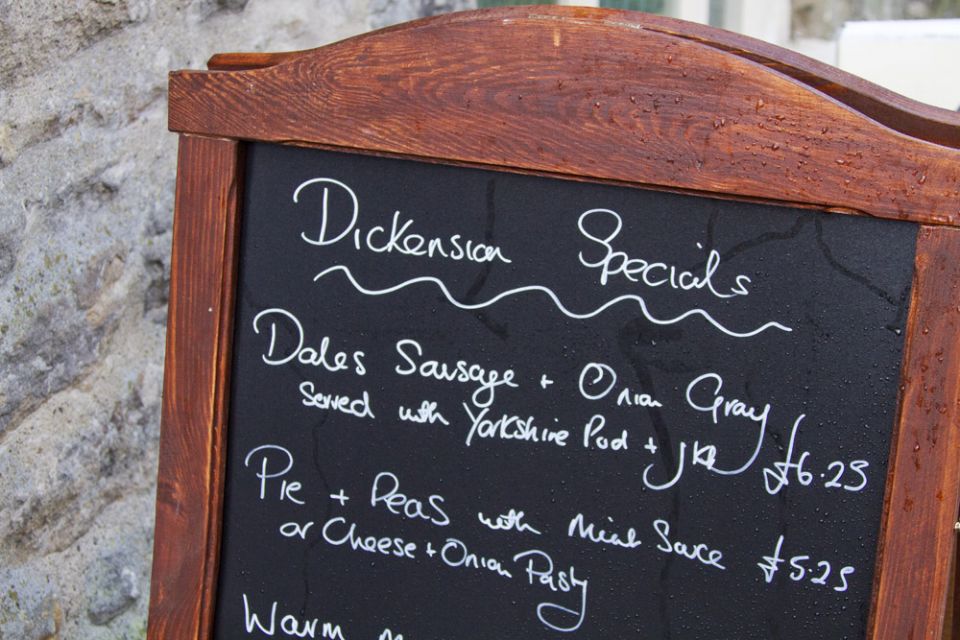 Dickensian Specials
Dales Sausage + Onion Gravy
Served with Yorkshire Pud + JKt £6.25
Pie + Peas with Mint Sauce £5.25
or Cheese + Onion Pasty
Warm